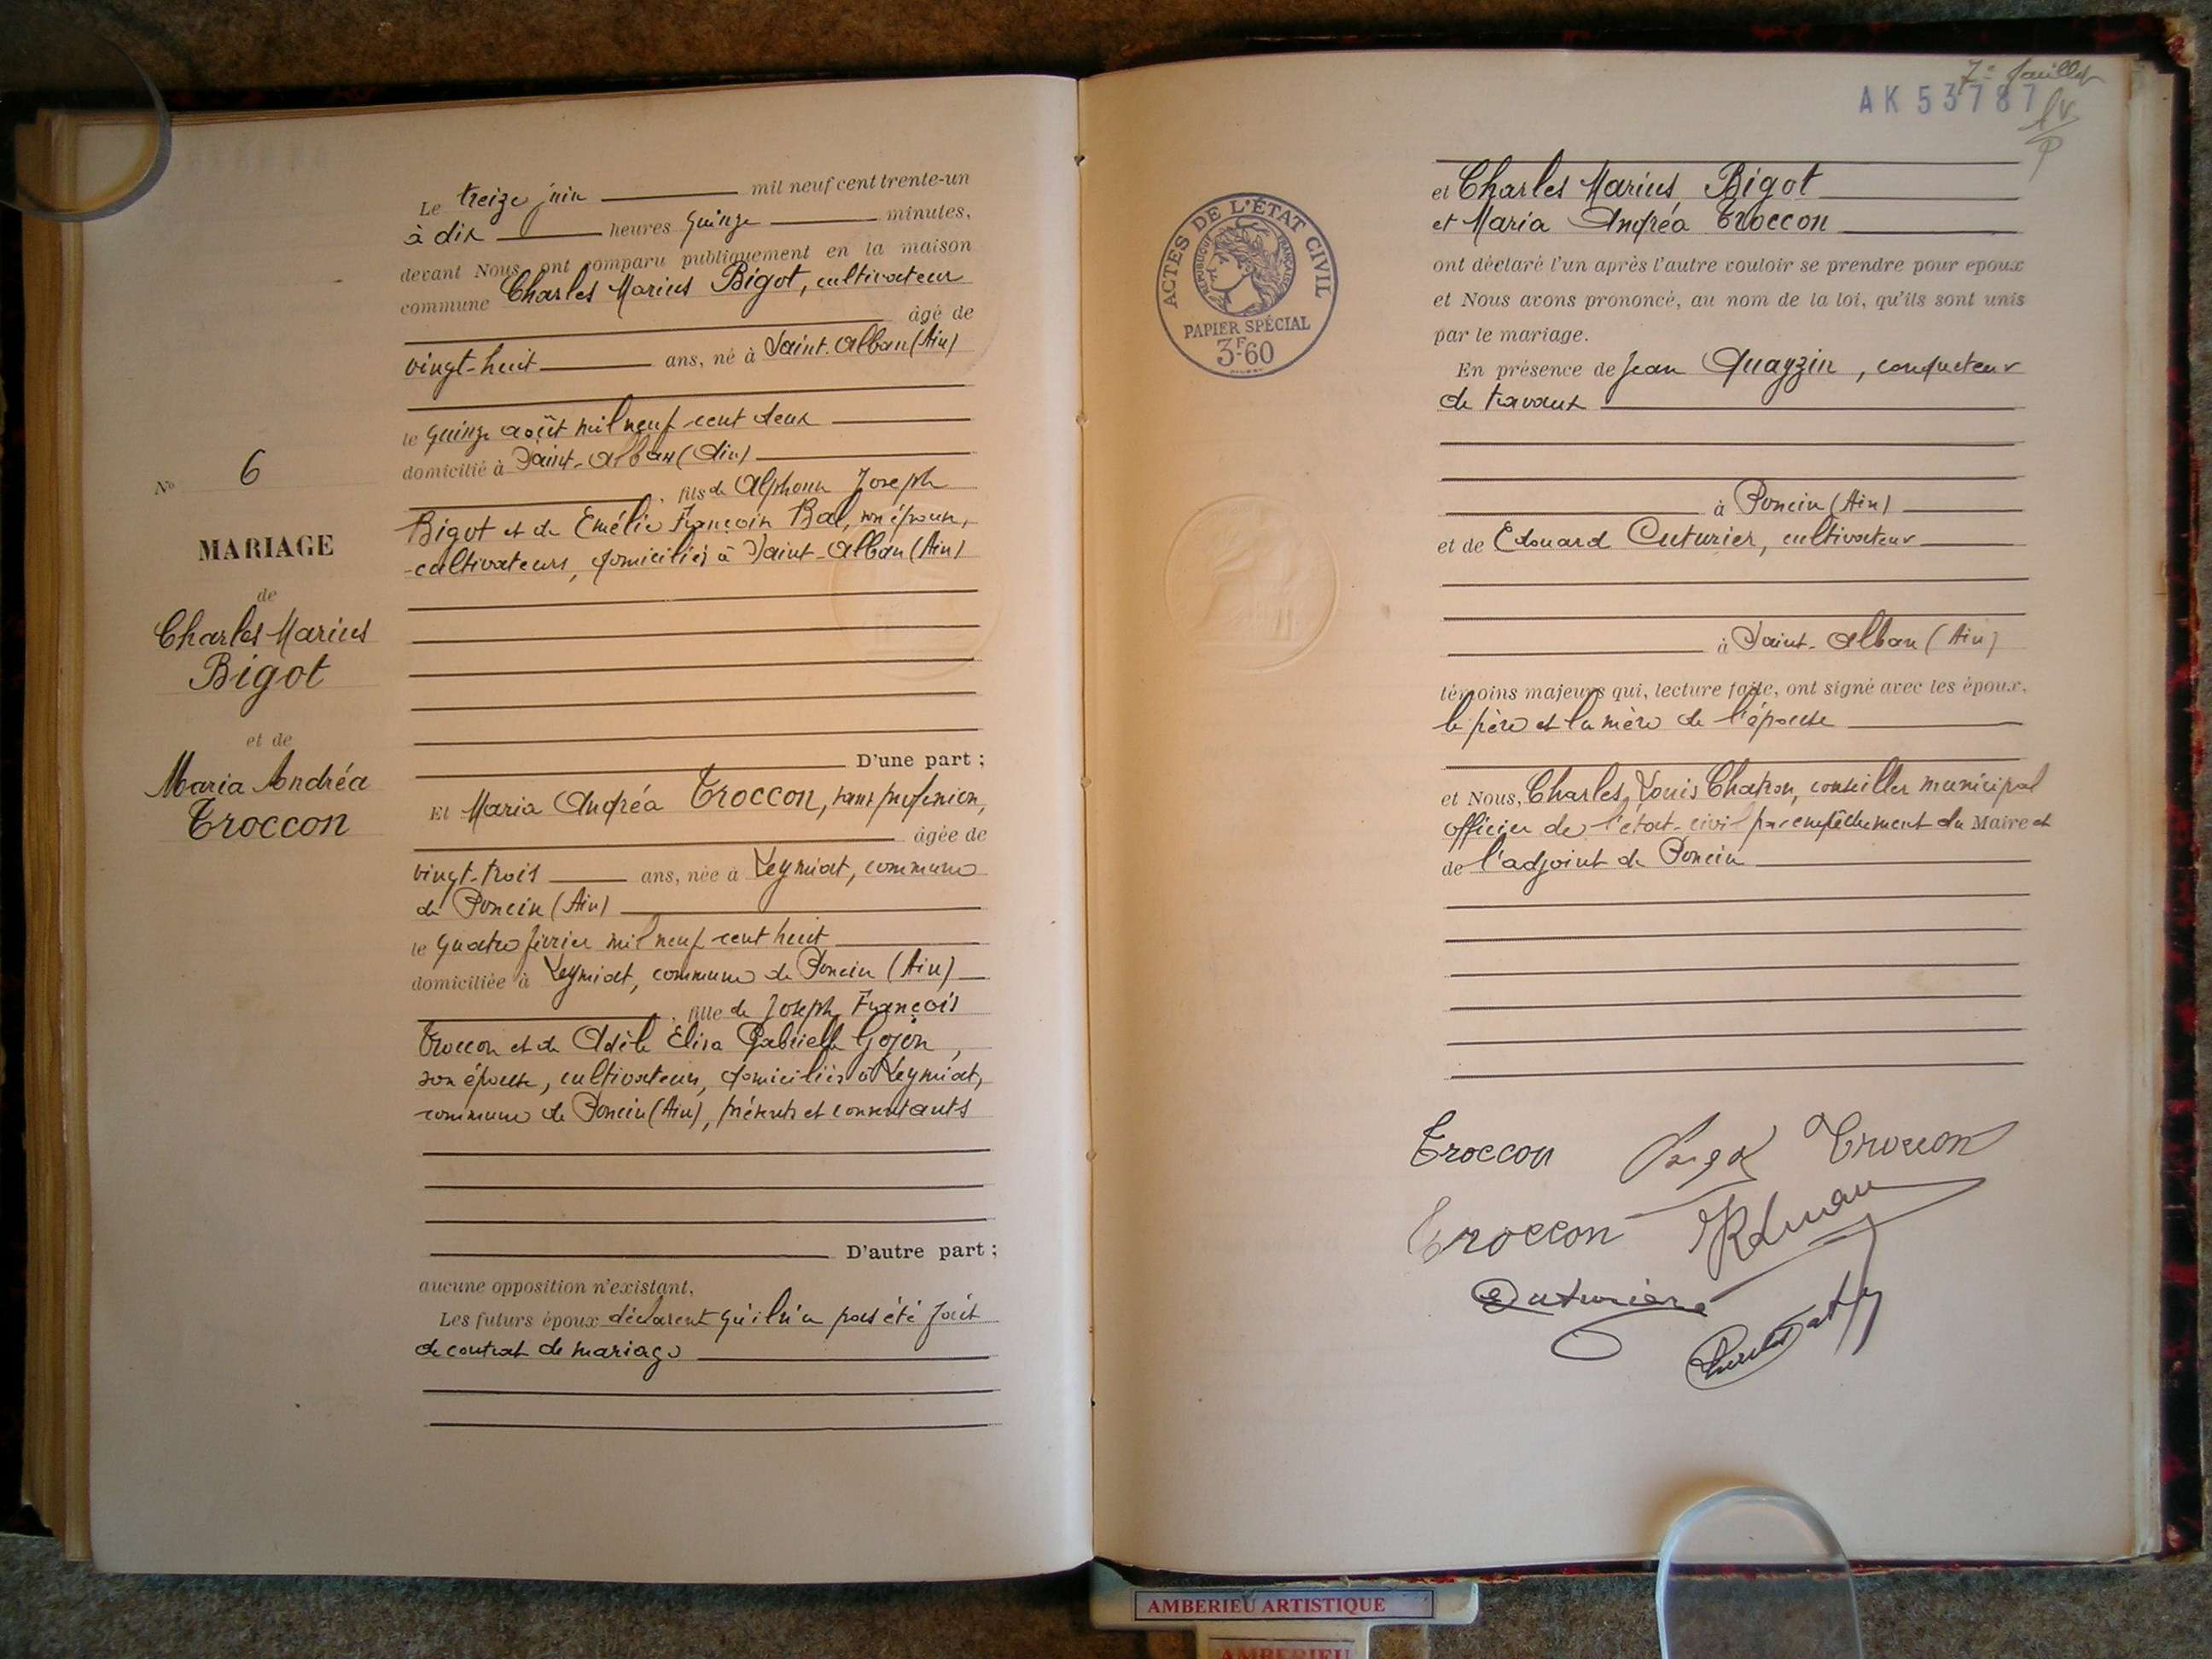 Le treize juin mil neuf cent trente-un
à dix heures quinze minutes,
devant Nous ont comparu publiquement en la maison
commune Charles Marius Bigot, cultivateur
âgé de
vingt-huit ans, né à Saint-Alban (Ain)
le quinze août mil neuf cent deux
domicilié à Saint-Alban (Ain)
, fils de Alphonse Joseph
Bigot et de Emélie Françoise Bal, son épouse,
cultivateurs, domiciliés à Saint-Alban (Ain)
No 6
MARIAGE
de
Charles Marius
Bigot
et de
Maria Andréa
Troccon
D'une part ;
Et Maria Andréa Troccon, sans profession,
âgée de
vingt-trois ans, née à Leymiat, commune
de Poncin (Ain)
le quatre février mil neuf cent huit
domiciliée à Leymiat, commune de Poncin (Ain)
, fille de Joseph François
Troccon et de Adèle Elisa Gabrielle Gojon,
son épouse, cultivateurs, domiciliés à Leymiat,
commune de Poncin (Ain), présents et consentants
D'autre part ;
aucune opposition n'existant,
Les futurs époux déclarent qu'il n'a pas été fait
de contrat de mariage
7e feuillet
AK 53787
ACTES DE L'ÉTAT CIVIL
RÉPUBLIQUE FRANÇAISE
PAPIER SPÉCIAL
3F-60
et Charles Marius Bigot
et Maria Andréa Troccon
ont déclaré l'un après l'autre vouloir se prendre pour époux
et Nous avons prononcé, au nom de la loi, qu'ils sont unis
par le mariage.
En présence de Jean Quayzin, conducteur
de travaux
à Poncin (Ain)
et de Edouard Cuturier, cultivateur
à Saint-Alban (Ain)
témoins majeurs qui, lecture faite, ont signé avec les époux,
le père et la mère de l'épouse
et Nous, Charles, Louis Chatron, conseiller municipal
officier de l'état-civil par empêchement du Maire et
de l'adjoint de Poncin
Troccon Bigot Troccon
Troccon
Cuturier
AMBERIEU ARTISTIQUE
AMBERIEU